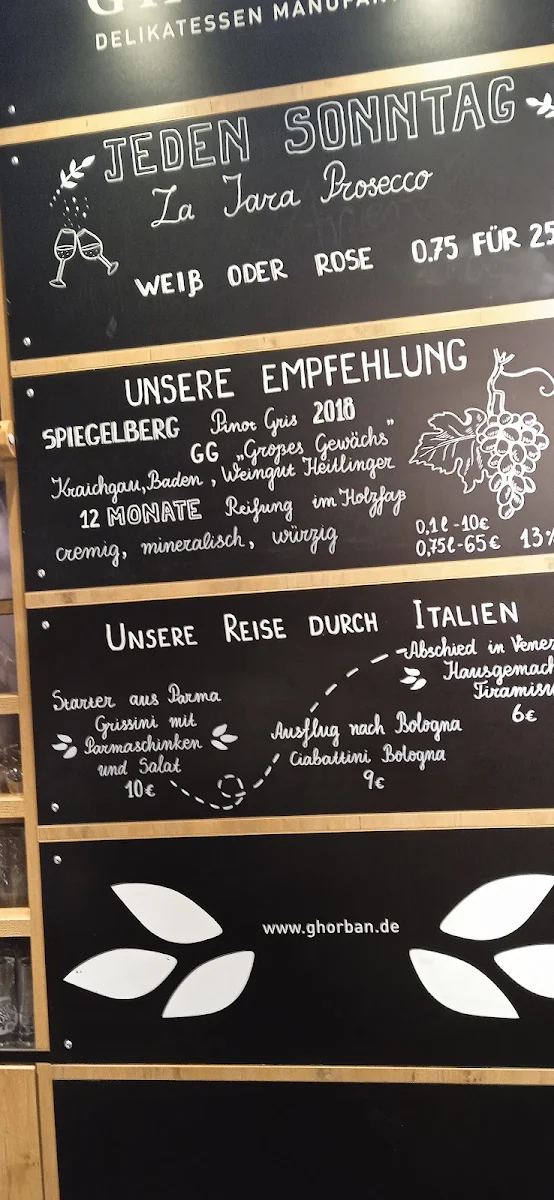 DELIKATESSEN
JEDEN SONNTAG
La Jara Prosecco
WEIß ODER ROSE 0.75 FÜR 25
UNSERE EMPFEHLUNG
SPIEGELBERG Pinot Gris 2018
GG „Großes Gewächs"
Kraichgau, Baden, Weingut Heitlinger
12 MONATE Reifung im Holzfaß
cremig, mineralisch, würzig
0,1l-10€
0,75l-65€ 13%
UNSERE REISE DURCH ITALIEN
Starter aus Parma
Grissini mit
Parmaschinken
und Salat
10€
Ausflug nach Bologna
Ciabattini Bologna
9€
Abschied in Vene
Hausgemach
Tiramisu
6€
www.ghorban.de